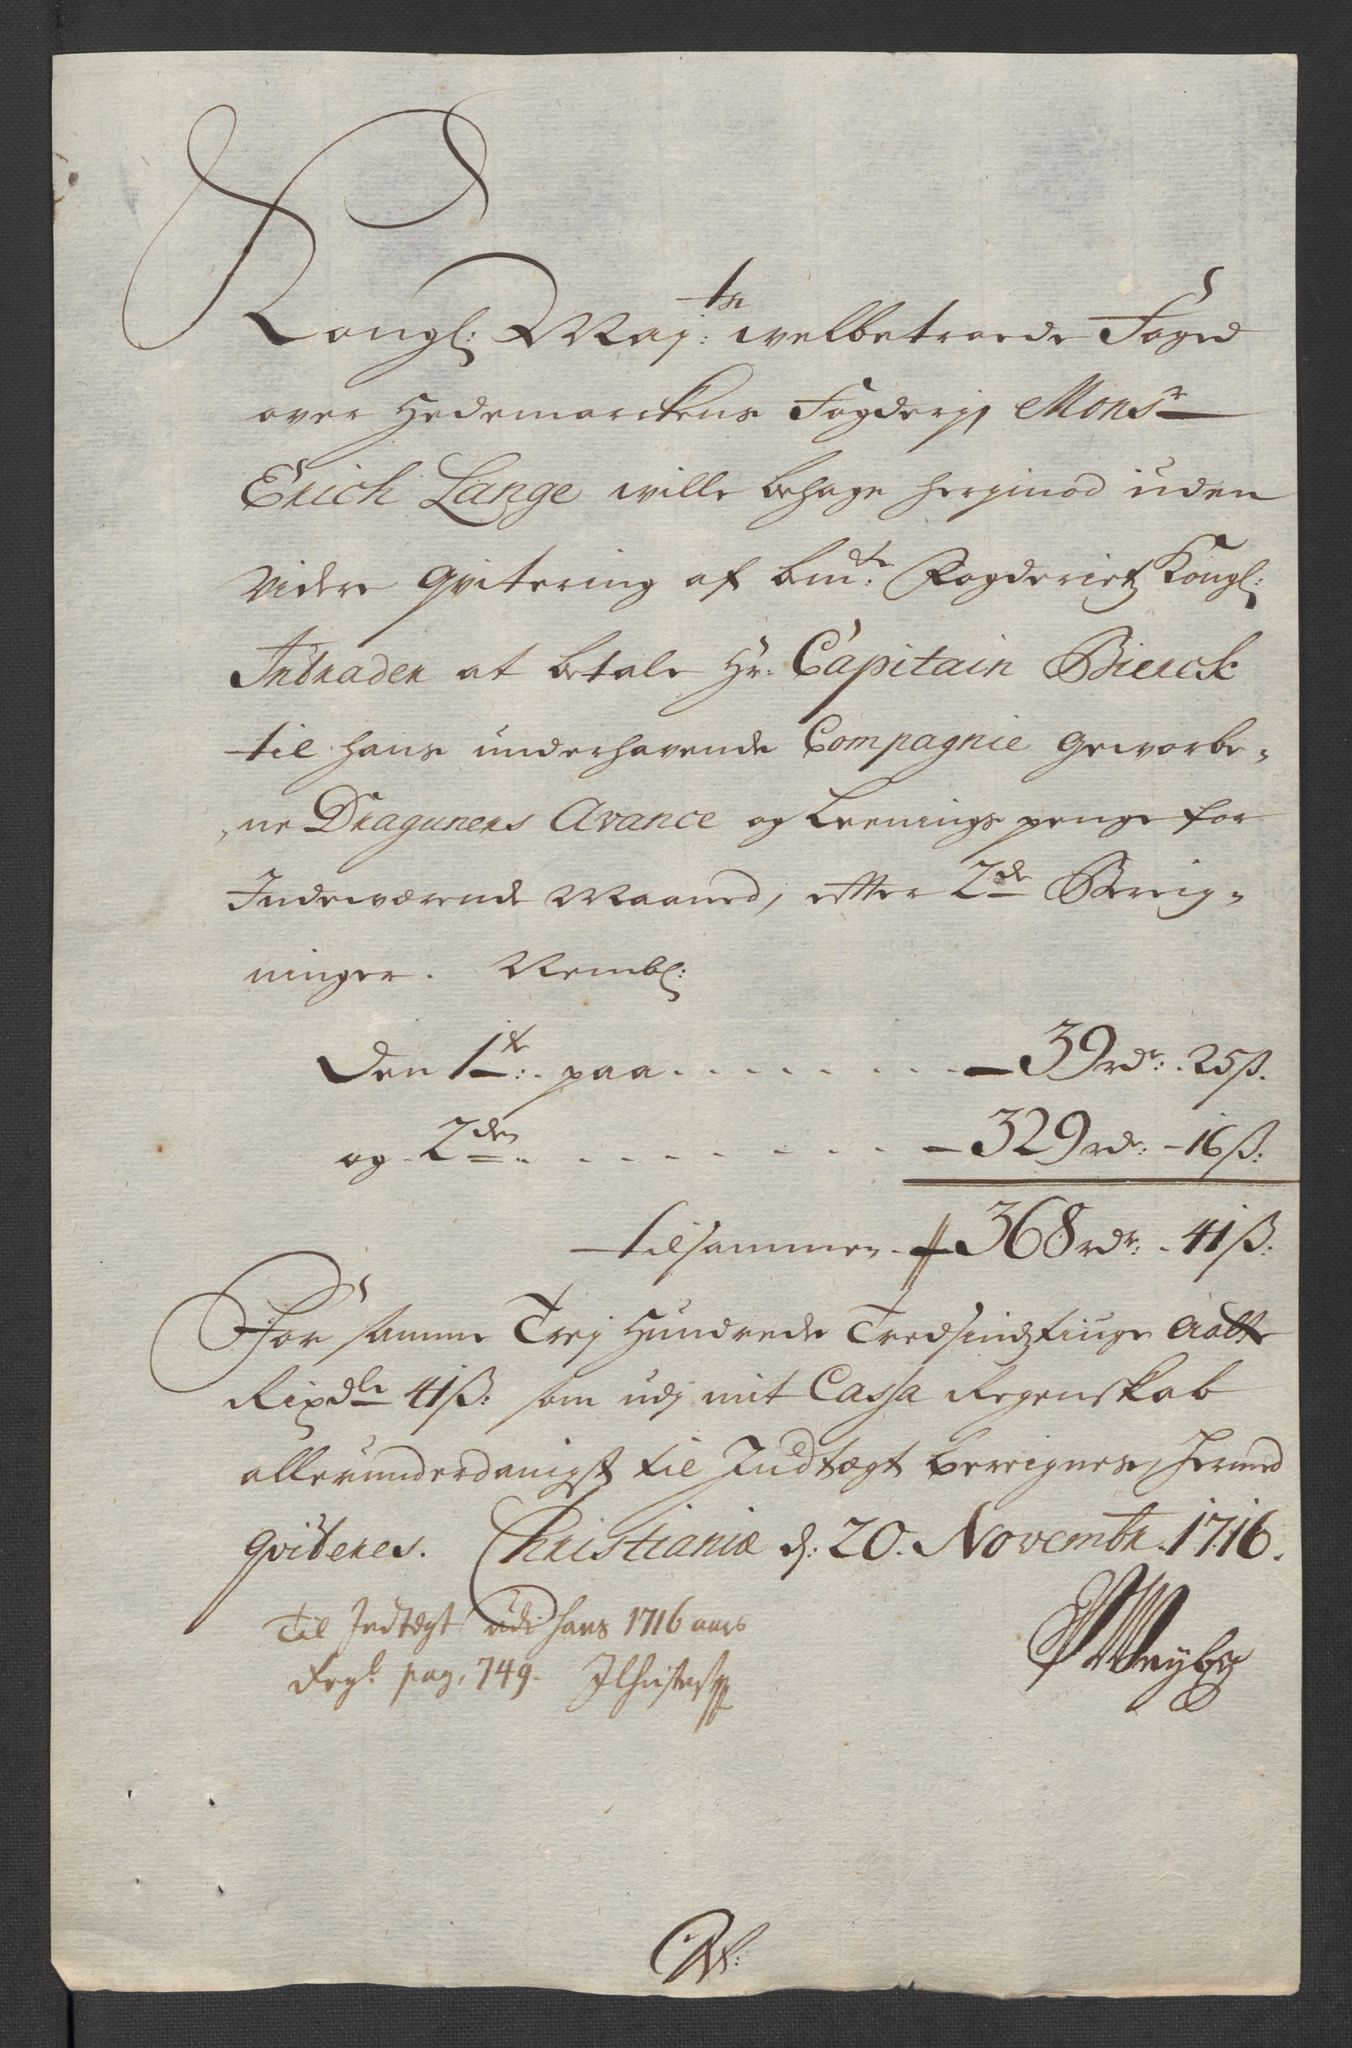 Kongl: May:ts welbetroede Foged
over Hedemarckens Fogderj, Monsr
Erich Lange wille behage herjmod uden
videre qvitering af bmte Fogderietz Kongl:
Intrader at betale Hr: Capitain Bierck
til hans underhavende Compagnie geworbe-
ne Draguners Avance og Leenings penge for
Indewærende Maaned, efter 2de Bereig-
ninger. Nembl:
Den 1te: paa - 39 rdr: 25 ß.
og 2den - 329 rdr: - 16 ß:
tilsammen - 368 rdr: 41 ß:
For samme Trej Hundrede Tredsindztiuge Aatte
Rixdlr 41 ß: som udj mit Cassa Regenskab
allerunderdanigst til Indtægt bereignes, hermed
qviteres. Christianiæ d: 20. Novembr. 1716.
Til Indtegt udi hans 1716 aars
Regl. pag. 749.